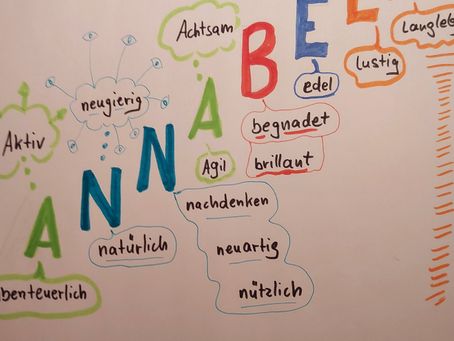 Achtsam
Langleb
lustig
edel
neugierig
Aktiv
begnadet
brillant
Agil
A N N A B E L
nachdenken
natürlich
neuartig
nützlich
benteuerlich